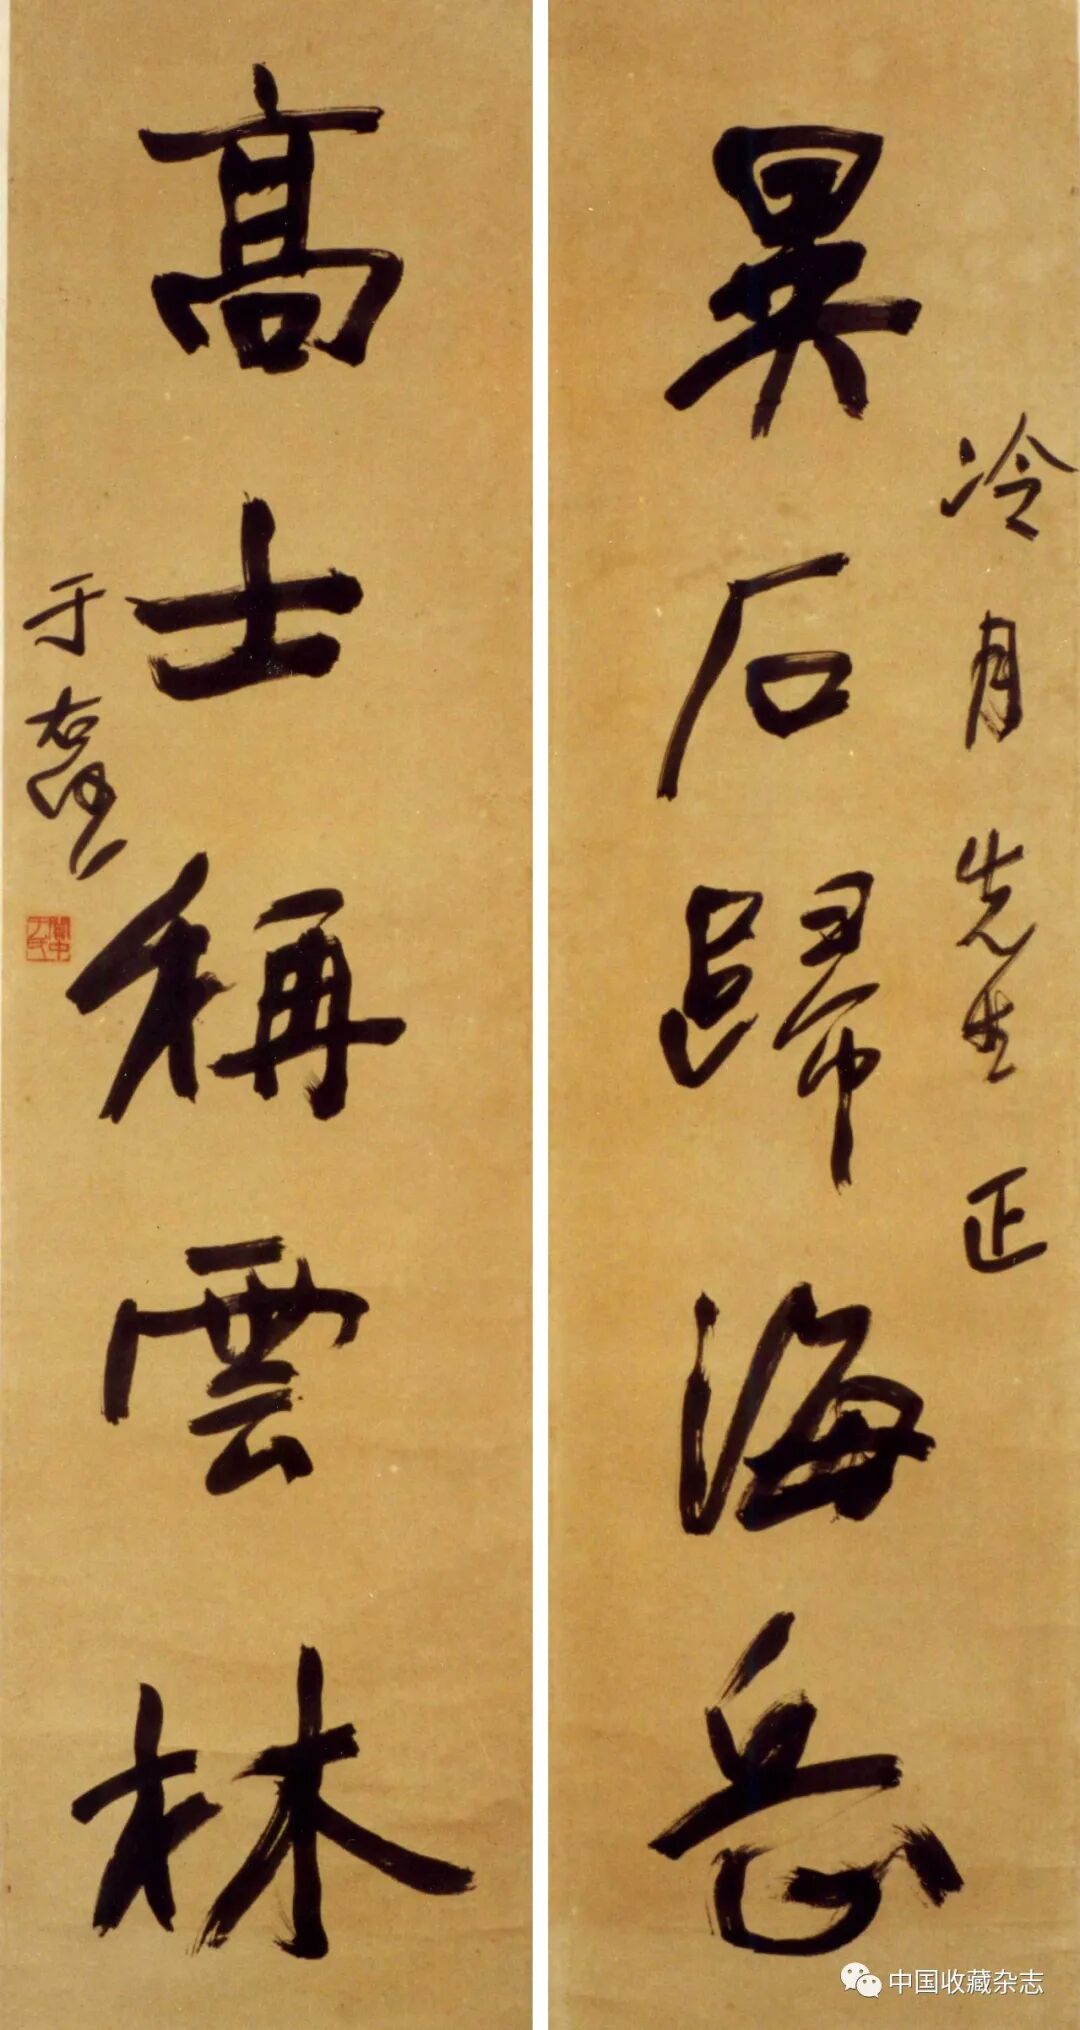 冷月先生正
異石歸海岳
高士稱雲林
于右任
關中于氏
中国收藏杂志